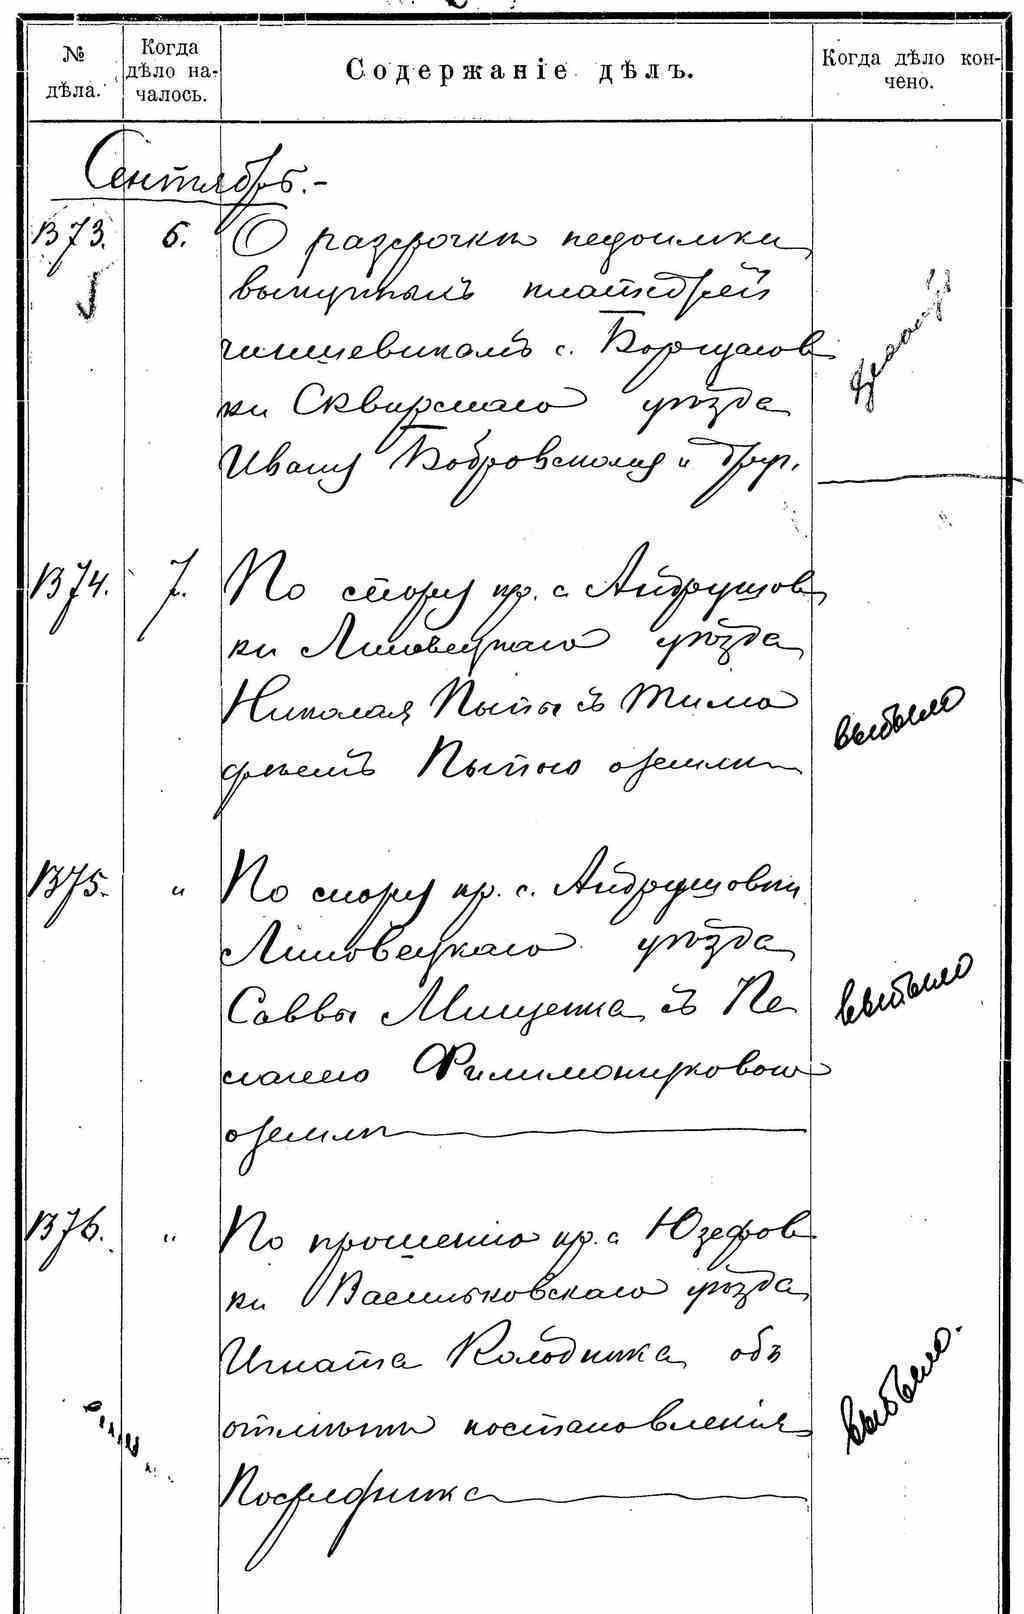 № дѣла.
Когда дѣло началось.
Содержаніе дѣлъ.
Когда дѣло кончено.
Сентябрь.-
1373.
6.
О разсрочкѣ недоимки
выкупныхъ платежей
чиншевикамъ с. Борщагов
ки Сквирскаго уѣзда
Ивану Бобровскому и друг.
1374.
7.
По спору кр. с. Андрушов
ки Липовецкаго уѣзда
Николая Пыты съ Тимо
фѣемъ Пытою о землѣ
выбыло
1375.
"
По спору кр. с. Андрушовки
Липовецкаго уѣзда
Саввы Мищенка съ Пе
лагею Филимончуковою
о землѣ
выбыло
1376.
"
По прошенію кр. с. Юзефов
ки Васильковскаго уѣзда
Игната Колодника объ
отмѣнѣ постановленія
Посредника
выбыло.